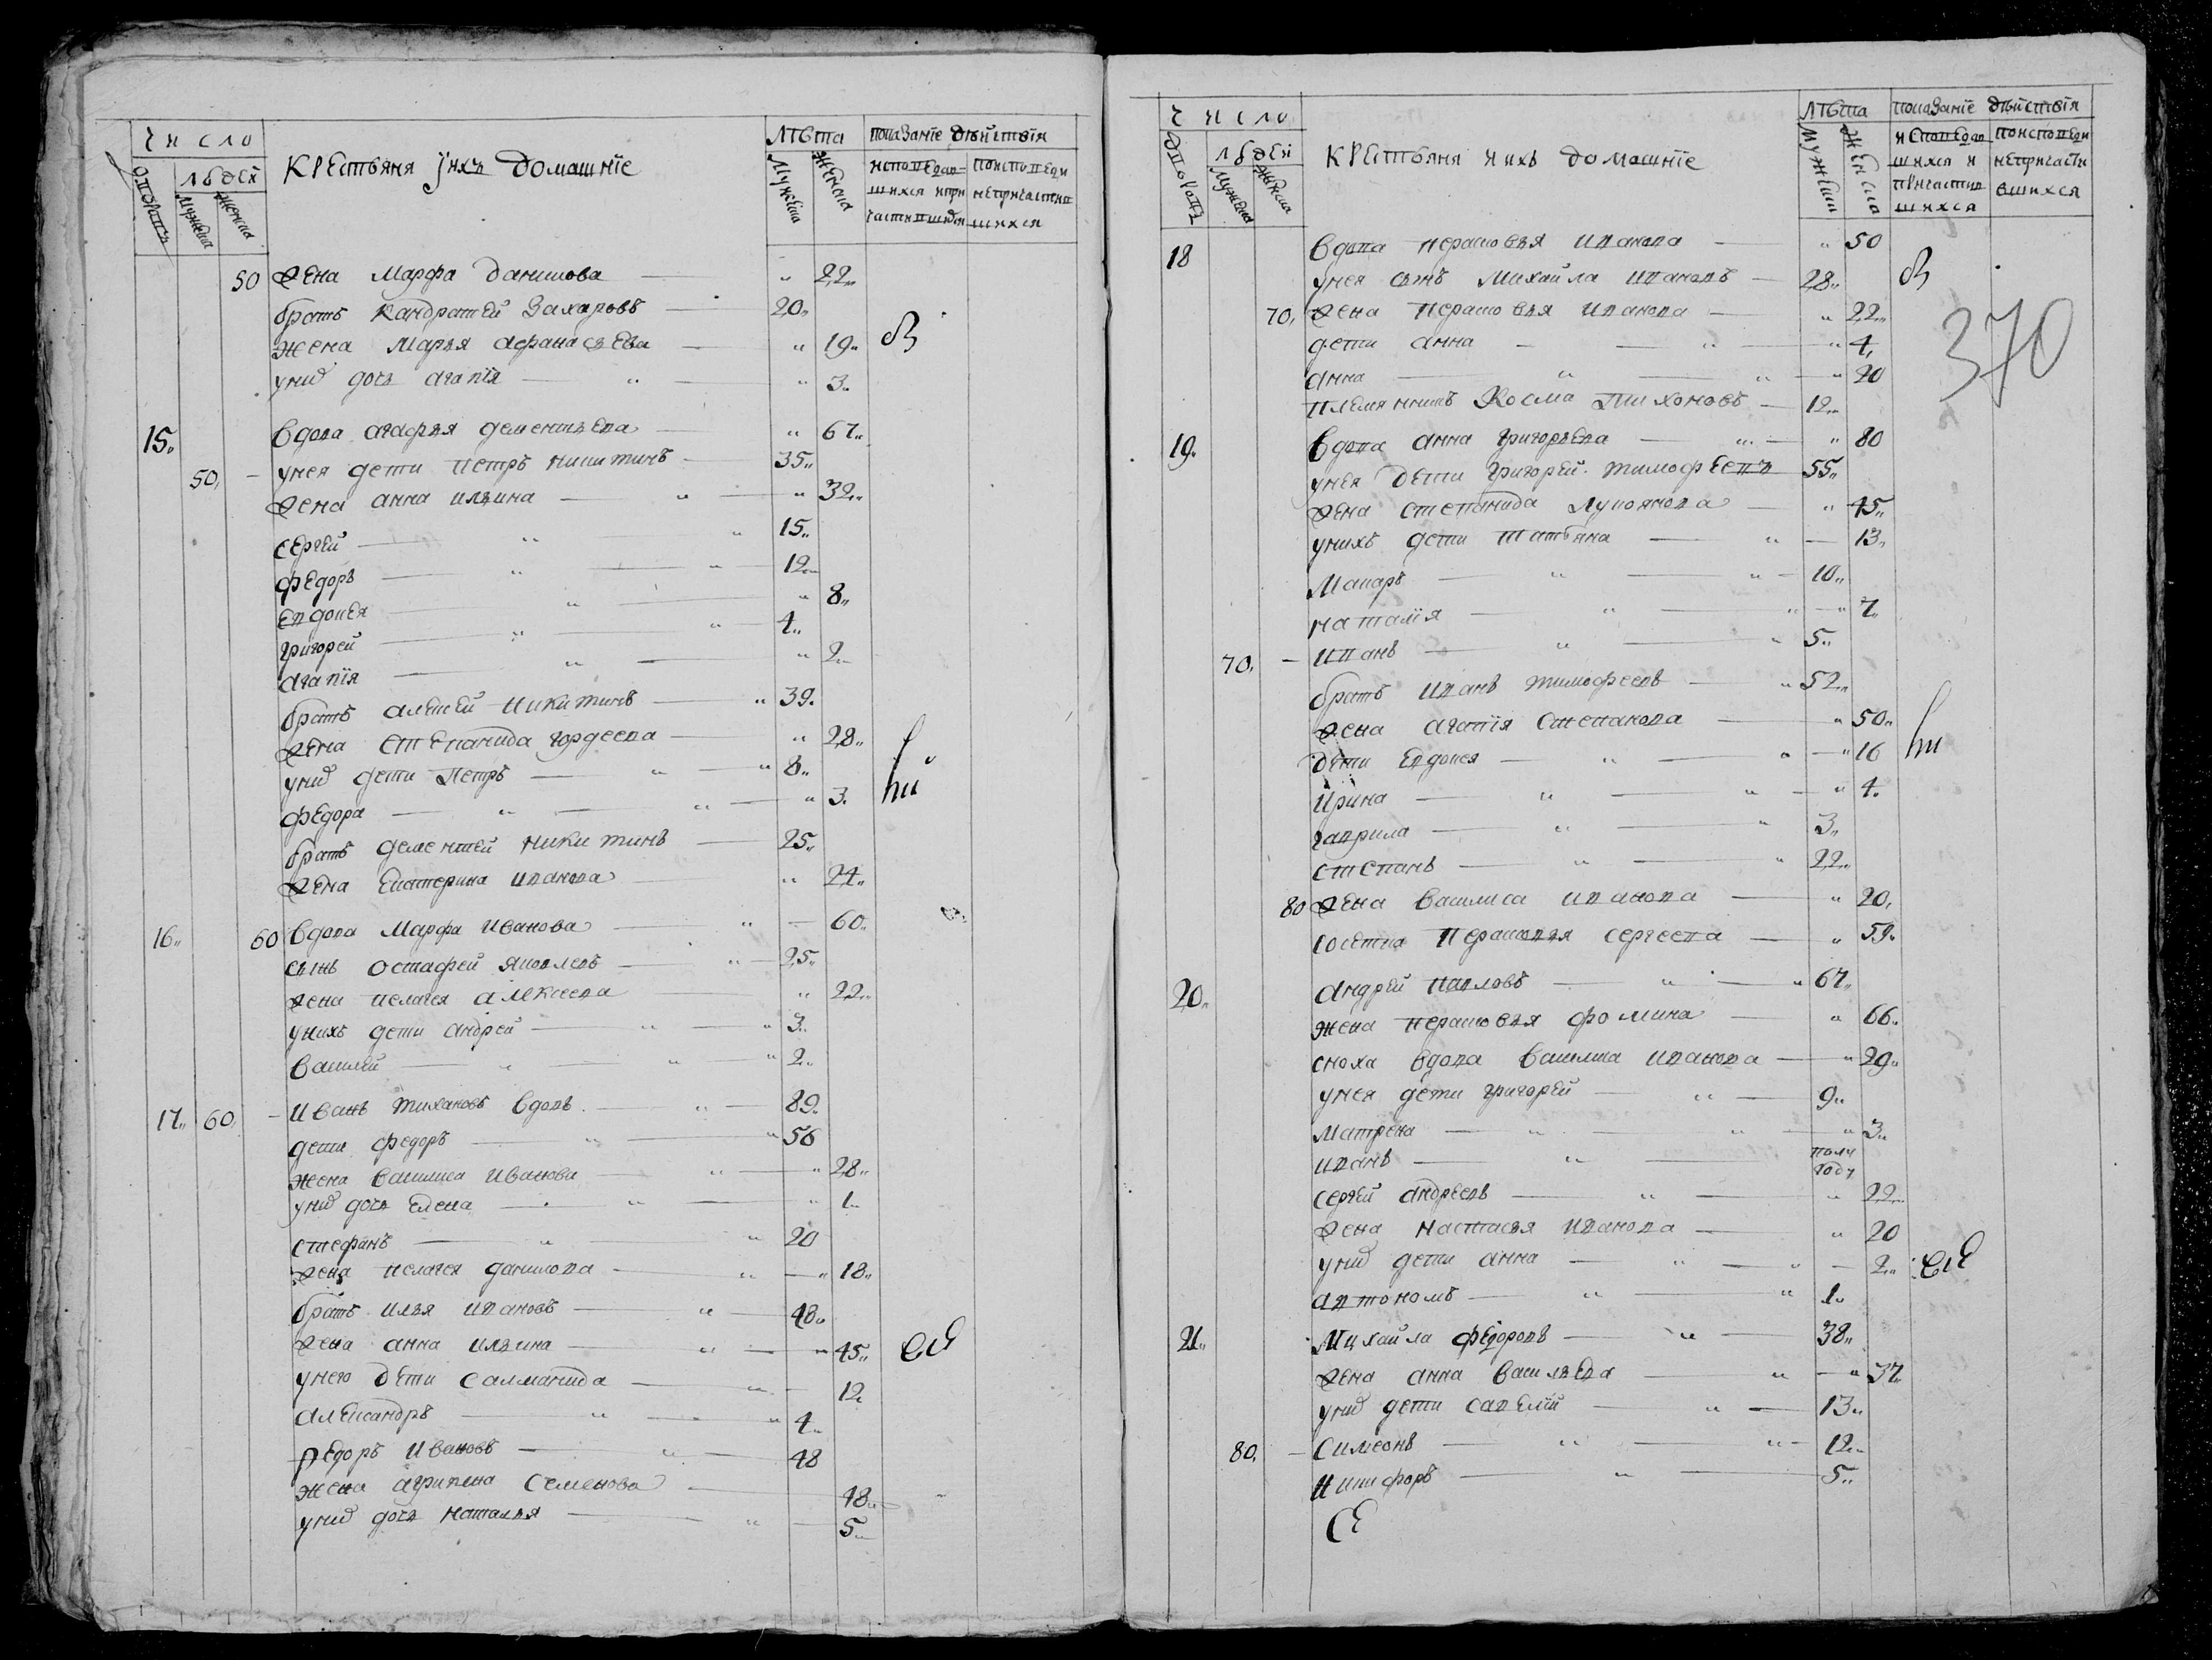 число
дворовъ
людей
мужеска
женска
крестьяня и ихъ домашнїе
лѣта
мужеска
женска
показанїе дѣйствїя
исповедавшихся и причастившихся
по исповеди не причастившихся
50 жена марфа данилова — „ 22„
братъ кандратей захаровъ — 20„
жена марья афанасьева — „ 19„
у нихъ дочь агапїя — „ — „ 3„
15„ вдова агафья дементьева — „ 67„
50, — у нея дети петръ никитинъ — 35„
жена анна ильина — „ — „ 32„
сергей — „ „ 15„
федоръ — „ — „ 12„
евдокея — „ — „ 8„
григорей — „ — „ 4„
агапїя — „ — „ 2„
братъ алексей никитинъ — „ 39„
жена степанида гордеева — „ 28„
у нихъ дети петръ — „ — „ 8„
федора — „ — „ — „ 3„
братъ дементей никитинъ — 25„
жена екатерина иванова — „ 24„
16„ 60 вдова марфа иванова — „ — 60„
сынъ остафей яковлевъ — „ — 25„
жена пелагея алексеева — „ 22„
у нихъ дети андрей — „ — „ 3„
василей — „ — „ — „ 2„
17„ 60„ — иванъ тихановъ вдовъ — „ — 89„
дети федоръ — „ — „ 56
жена василиса иванова — „ — „ 28„
у нихъ дочь елена — „ — „ 1„
стефанъ — „ — „ 20
жена пелагея данилова — „ — „ 18„
братъ илья ивановъ — „ — 48„
жена анна ильина — „ — „ 45„
у него дети саломанида — „ — 12„
александръ — „ — „ 4„
федоръ ивановъ — „ — 48
жена агрипина семенова — 48„
у нихъ дочь наталья — „ — 5„
число
дворовъ
людей
мужеска
женска
крестьяня и ихъ домашнїе
лѣта
мужеска
женска
показанїе дѣйствїя
исповедавшихся и причастившихся
по исповеди не причастившихся
370
18 вдова парасковья иванова — „ 50
у нея сынъ михайла ивановъ — 28„
70, жена парасковья иванова — „ 22„
дети анна — „ — „ 4,
анна — „ — „ — „ 20
племянникъ косма тихоновъ — 12„
19„ вдова анна григорьева — „ — „ 80
у нея дети григорей тимофеевъ 55„
жена степанида лукоянова — „ 45„
у нихъ дети татьяна — „ — 13„
макаръ — „ — „ — 10„
наталїя — „ — „ — „ 7„
70, — иванъ — „ — „ 5„
братъ иванъ тимофеевъ — „ 52„
жена агапїя степанова — „ 50„
дети евдокея — „ — „ — „ 16
ирина — „ — „ — „ 4„
гаврила — „ — „ 3„
степанъ — „ — „ 22„
80 жена василиса иванова — „ 20,
солетка парасковья сергеева — „ 59„
20„ андрей павловъ — „ — „ 67„
жена парасковья фомина — „ 66„
сноха вдова василиса иванова — „ 29„
у нея дети григорей — „ — 9„
матрена — „ — „ — „ 3„
иванъ — „ — полу году
сергей андреевъ — „ — „ 22„
жена настасья иванова — „ 20
у нихъ дети анна — „ — „ — 2„
автономъ — „ — „ 1„
21„ михайла федоровъ — „ — 38„
жена анна васильева — „ — „ 37„
у нихъ дети савелїй — „ — 13„
80, — симеонъ — „ — „ — 12„
никифоръ — „ — 5„